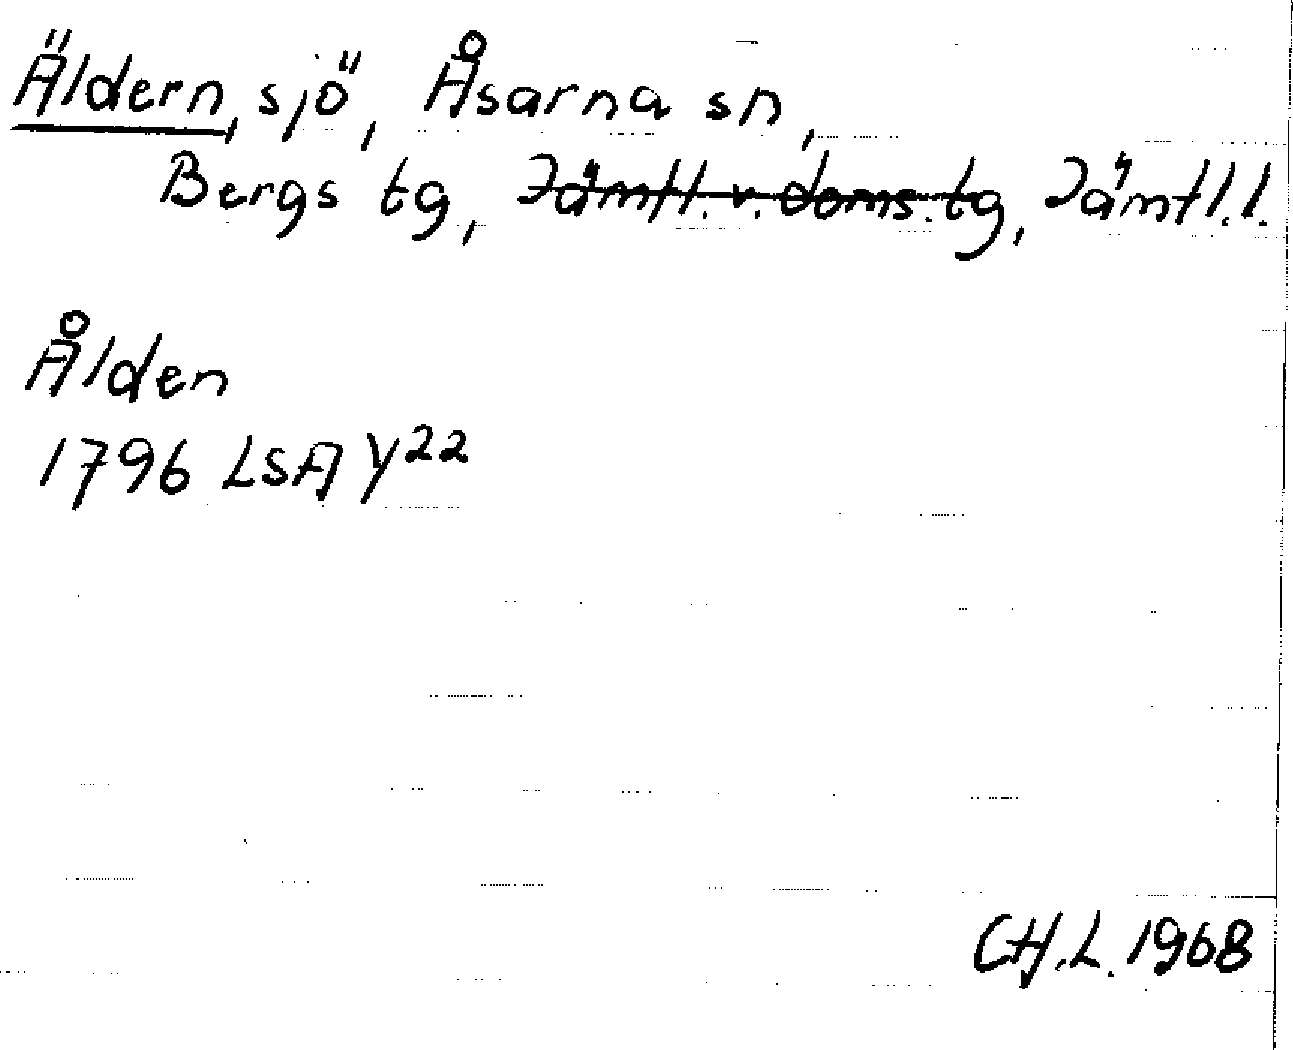 Äldern, sjö, Åsarna sn,
Bergs tg, Jämtl. v. doms. tg, Jämtl. l.
Ålden
1796 LSA Y22
CH.L. 1968